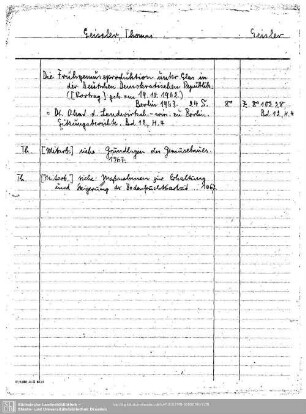 Geissler, Thomas Geissler
Die Frühgemüseproduktion unter Glas in
der Deutschen Demokratischen Republik.
([Vortrag] geh. am 19. 10. 1962.)
Berlin 1963. 24 S. 8° Z. 8° 182.28,
= Dt. Akad. d. Landwirtsch.-wiss. zu Berlin. Bd. 12, H. 4
Sitzungsberichte. Bd. 12, H. 4
Th. [Mitarb.] siehe Grundlagen des Gemüsebaues.
Th. [Mitarb.] siehe: Massnahmen zur Erhaltung
und Steigerung der Bodenfruchtbarkeit
Sächsische Landesbibliothek -
Staats- und Universitätsbibliothek Dresden